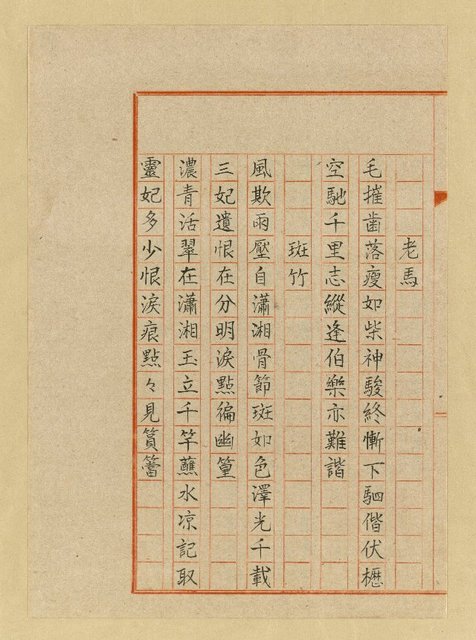 老馬
毛摧齒落瘦如柴神駿終慚下駟偕伏櫪
空馳千里志縱逢伯樂亦難諧
斑竹
風欺雨壓自瀟湘骨節斑如色澤光千載
三妃遺恨在分明淚點徧幽篁
濃青活翠在瀟湘玉立千竿蘸水凉記取
靈妃多少恨淚痕點々見篔簹